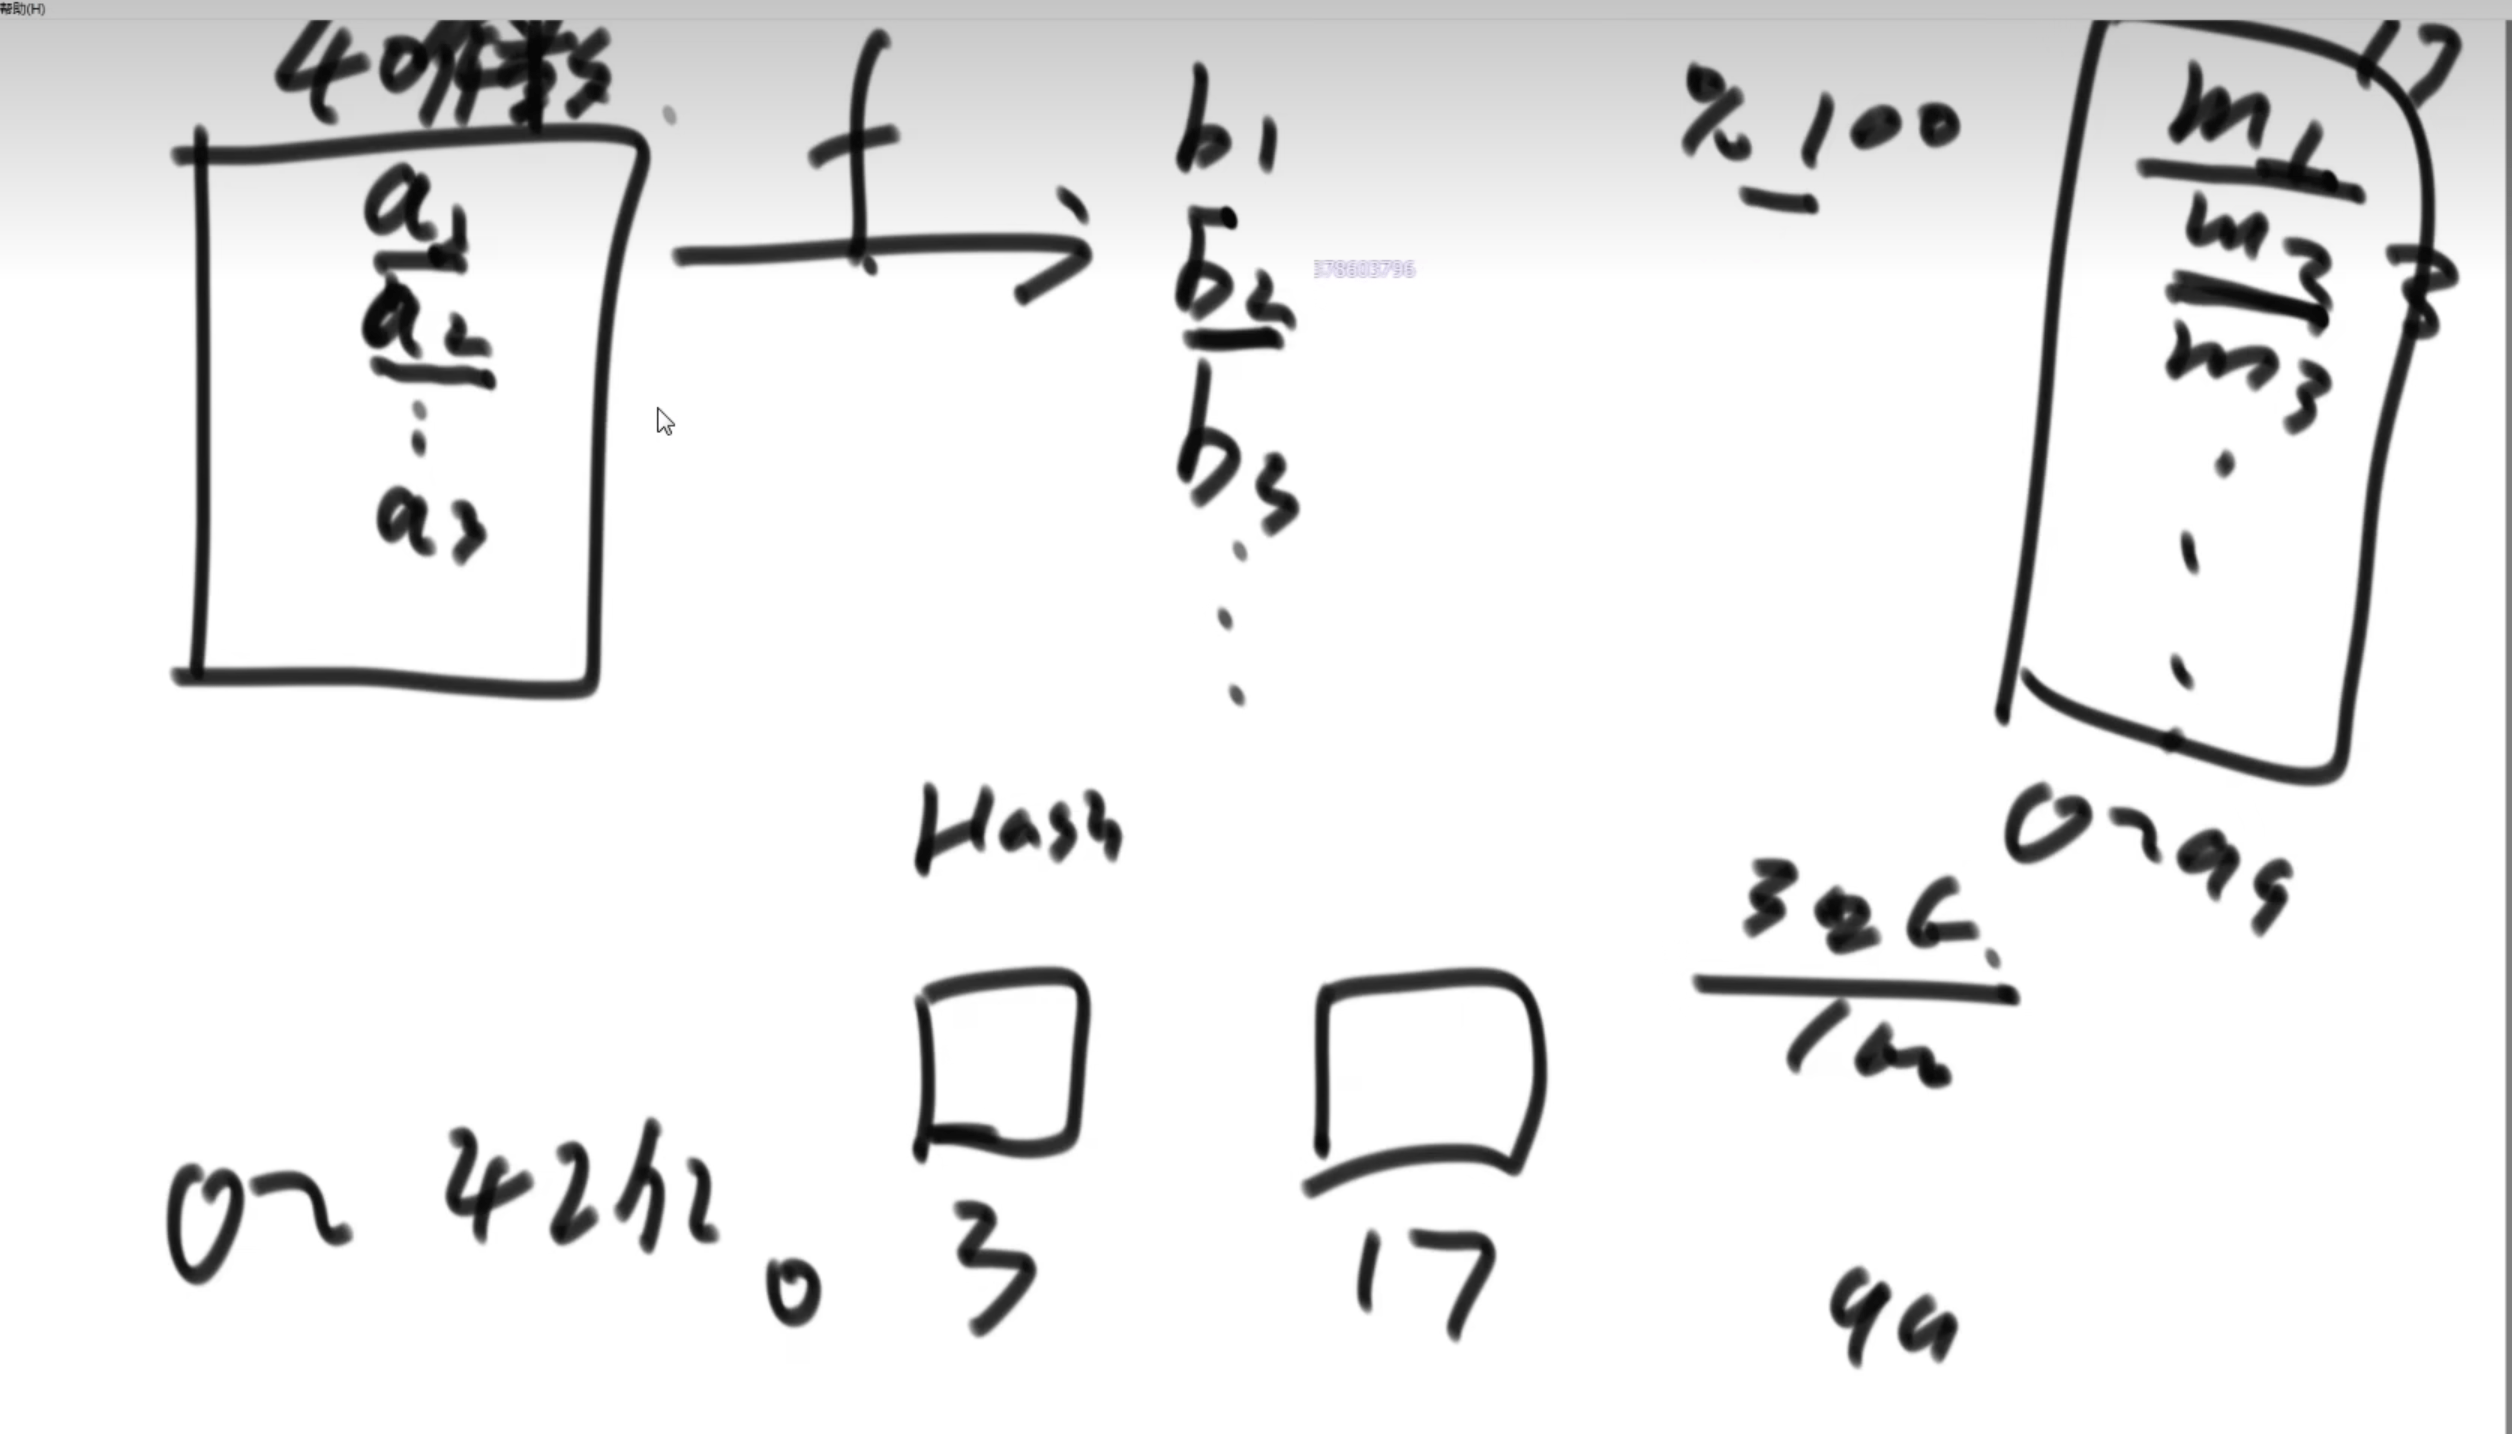 帮助(H)
40亿
a1
a2
a3
f
b1
b2
b3
378603796
% 100
m1
m2
m3
17
3
0~99
Hash
32G
100
0~42亿
0
3
17
99